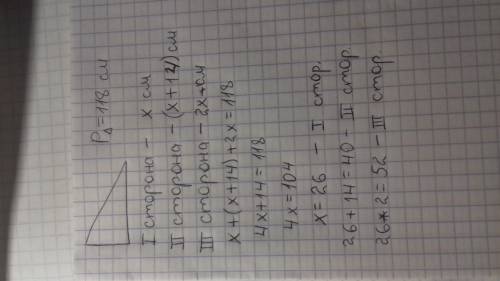 P△ = 118 см
I сторона – x см
II сторона – (x+14) см
III сторона – 2x см
x + (x+14) + 2x = 118
4x + 14 = 118
4x = 104
x = 26 – I стор.
26 + 14 = 40 – II стор.
26 * 2 = 52 – III стор.